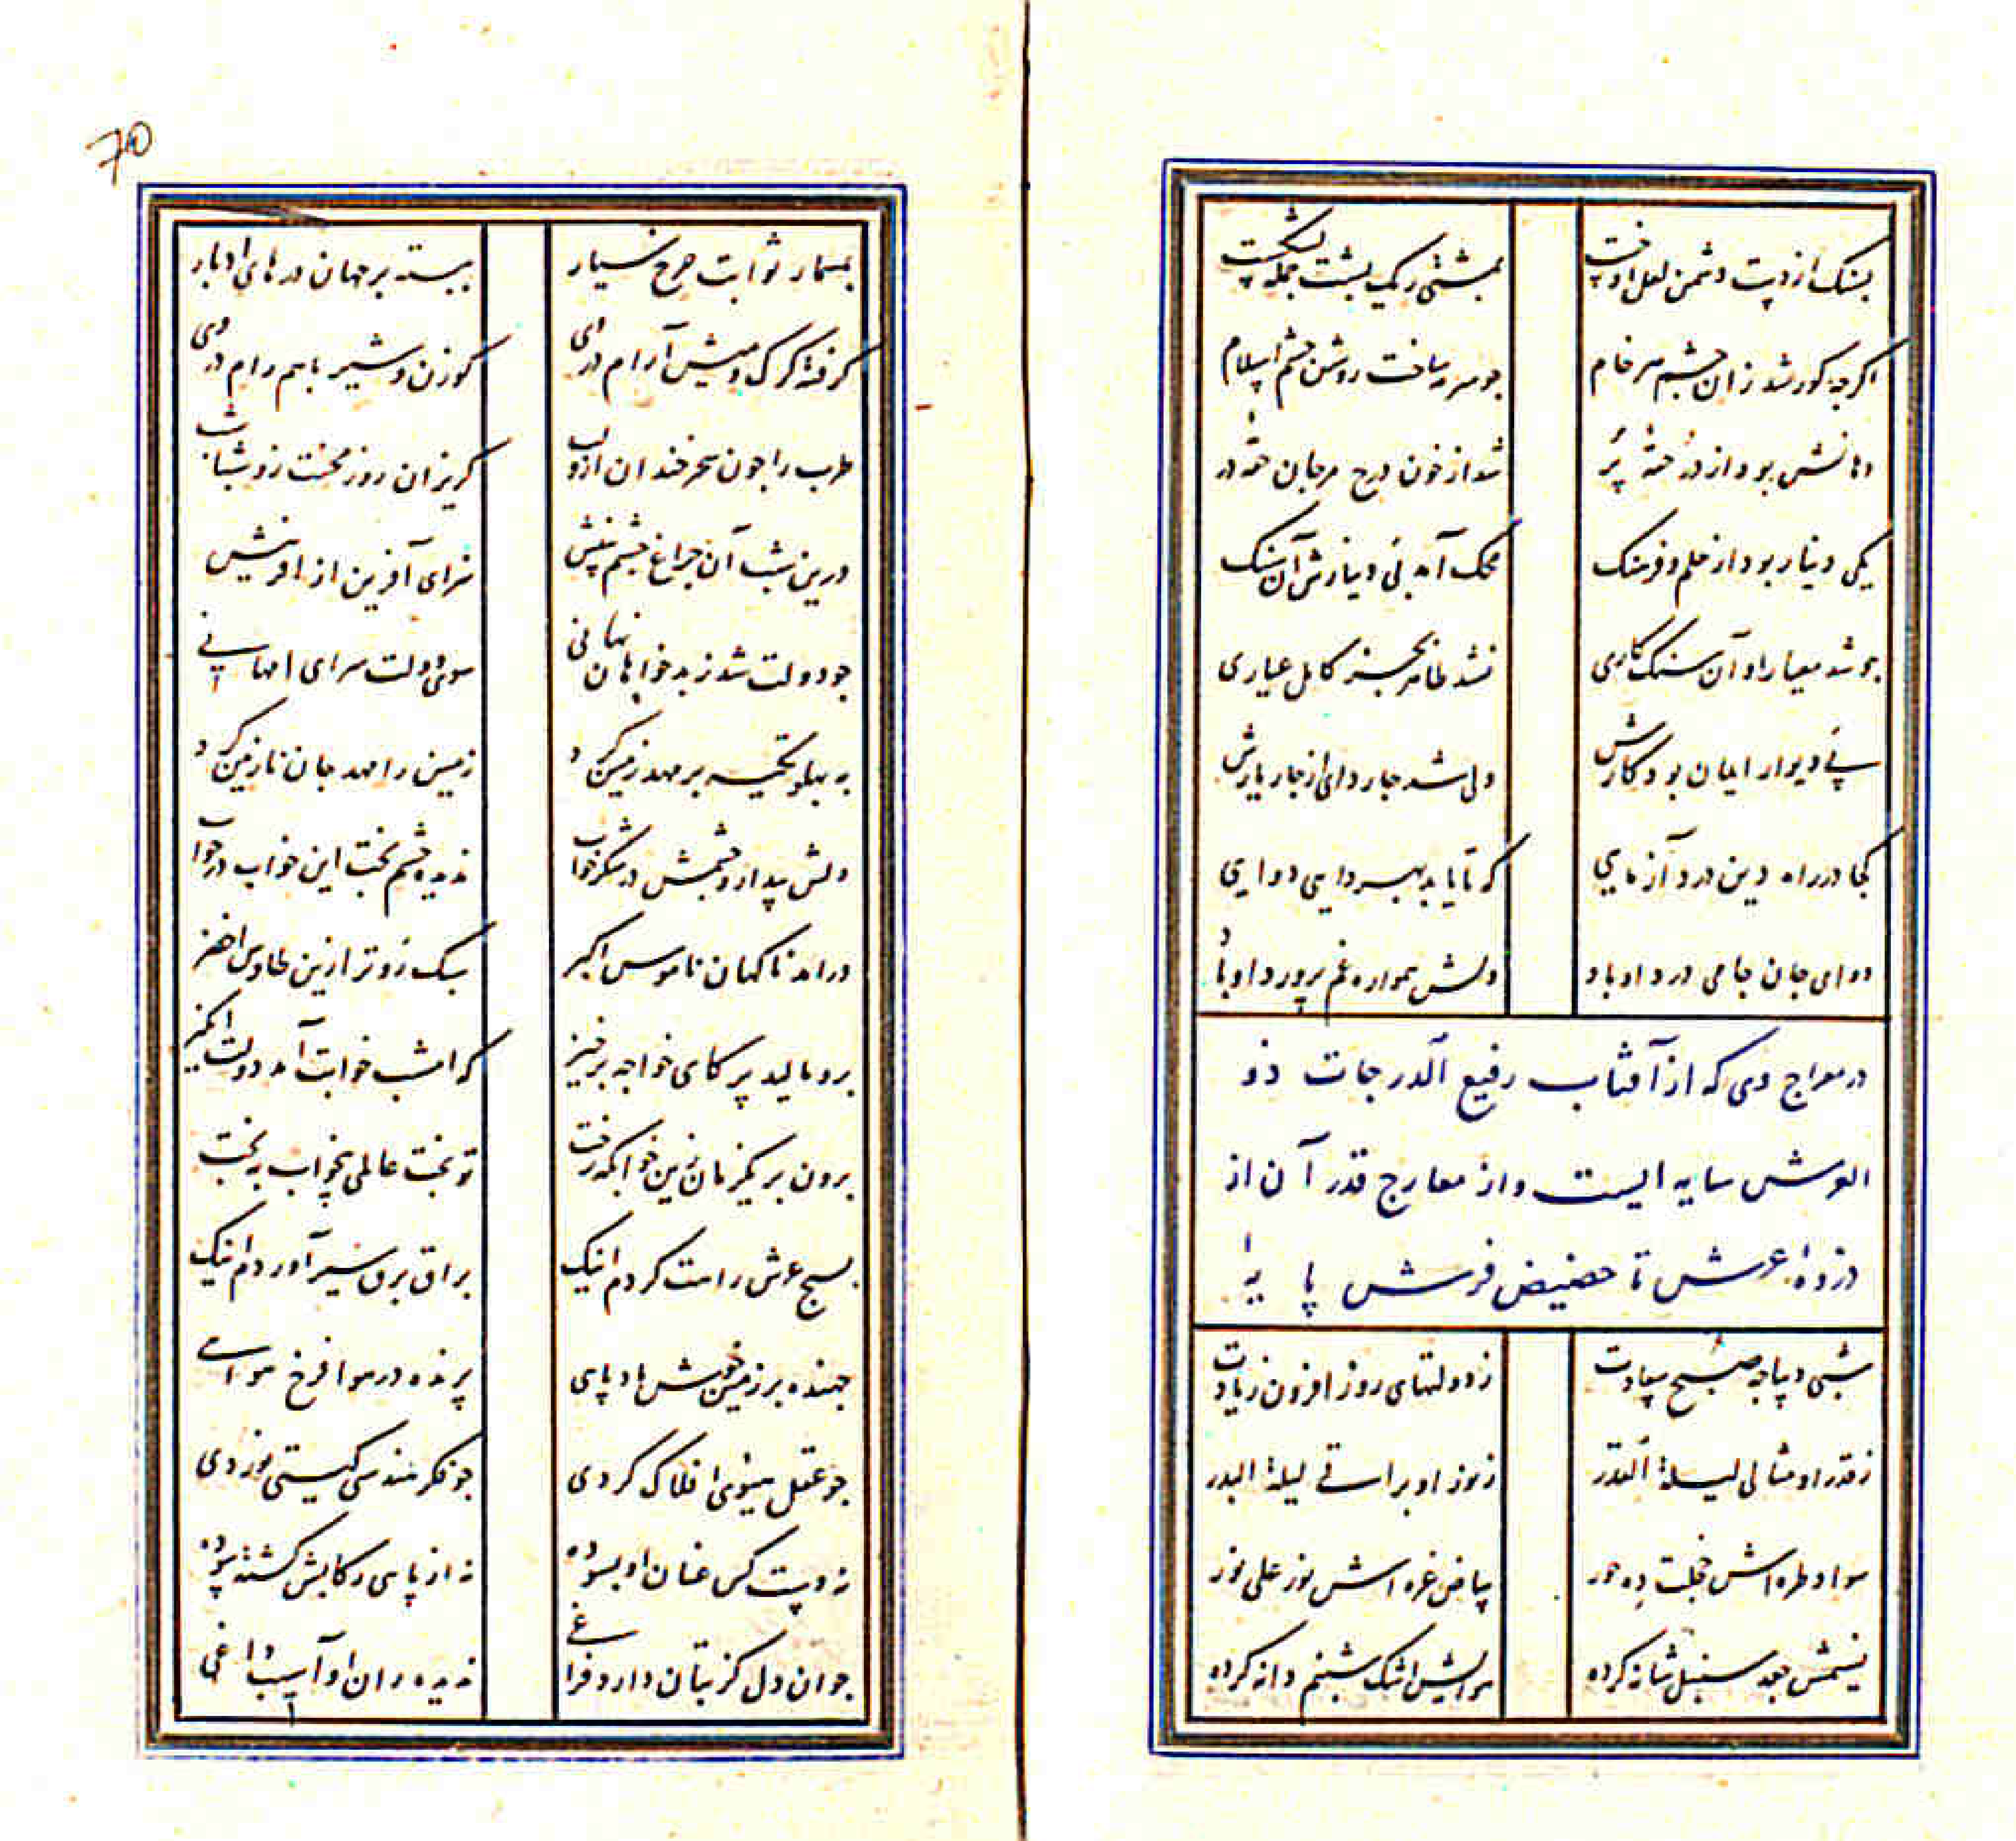 بسنک از دست دشمن لعل او خست بمشتی ریک پشت جمله بشکست
اکرچه کور شد زان چشم سر خام چو سرمه ساخت روشن چشم اسلام
دهانش بود از در حقهٔ پر شد از خون درج مرجان حقهٔ در
یکی دینار بود از علم و فرهنک محک آمد پی دینارش آن سنک
چو شد معیار او آن سنک کاری نشد ظاهر بجز کامل عیاری
پی دیوار ایمان بود کارش ولی شد چار دای از چار یارش
کجا در راه دین درد آزمایی که تا یابد بهر دایی دوایی
دوای جان جامی درد او باد دلش همواره غم پرورد او باد
در معراج وی که از آفتاب رفیع الدرجات ذو
العرش سایه ایست و از معارج قدر آن از
ذروه عرش تا حضیض فرش پایه
شبی دیباچه صبح سعادت ز دولتهای روز افزون زیادت
ز قدر او مثالی لیلة القدر ز نور او براتی لیلة البدر
سواد طره اش خجلت ده حور بیاض غره اش نور علی نور
نسیمش جعد سنبل شانه کرده هوایش اشک شبنم دانه کرده
70
بمسمار ثوابت چرخ سیار ببسته بر جهان درهای ادبار
کرفته کرک و میش آرام در وی کوزن و شیر با هم رام در وی
طرب را چون سحر خندان ازو لب کریزان روز محنت زو شباشب
درین شب آن چراغ چشم بینش سزای آفرین از آفرینش
چو دولت شد ز بدخواهان نهانی سوی دولت سرای امهانی
به پهلو تکیه بر مهد زمین کرد زمین را مهد جان نازنین کرد
دلش بیدار و چشمش در شکرخواب ندیده چشم بخت این خواب در خواب
درامد ناکهان ناموس اکبر سبک رو تر ازین طاوس اخضر
برو مالید پر کای خواجه برخیز که امشب خوابت آمد دولت انکیز
برون بر یکزمان زین خوابکه رخت تو بخت عالمی بیخواب به بخت
بسیج عرش رامت کردم اینک براق برق سیر آوردم اینک
جهنده بر زمین خوش باد پایی پرنده در هوا فرخ همایی
چو عقل سوی افلاک کردی چو فکر هندسی کیتی نوردی
نه دست کس عنان او بسوده نه از پای رکابش کشته سوده
چو آن دل کز بتان دارد فراغی ندیده ران او آسیب داغی